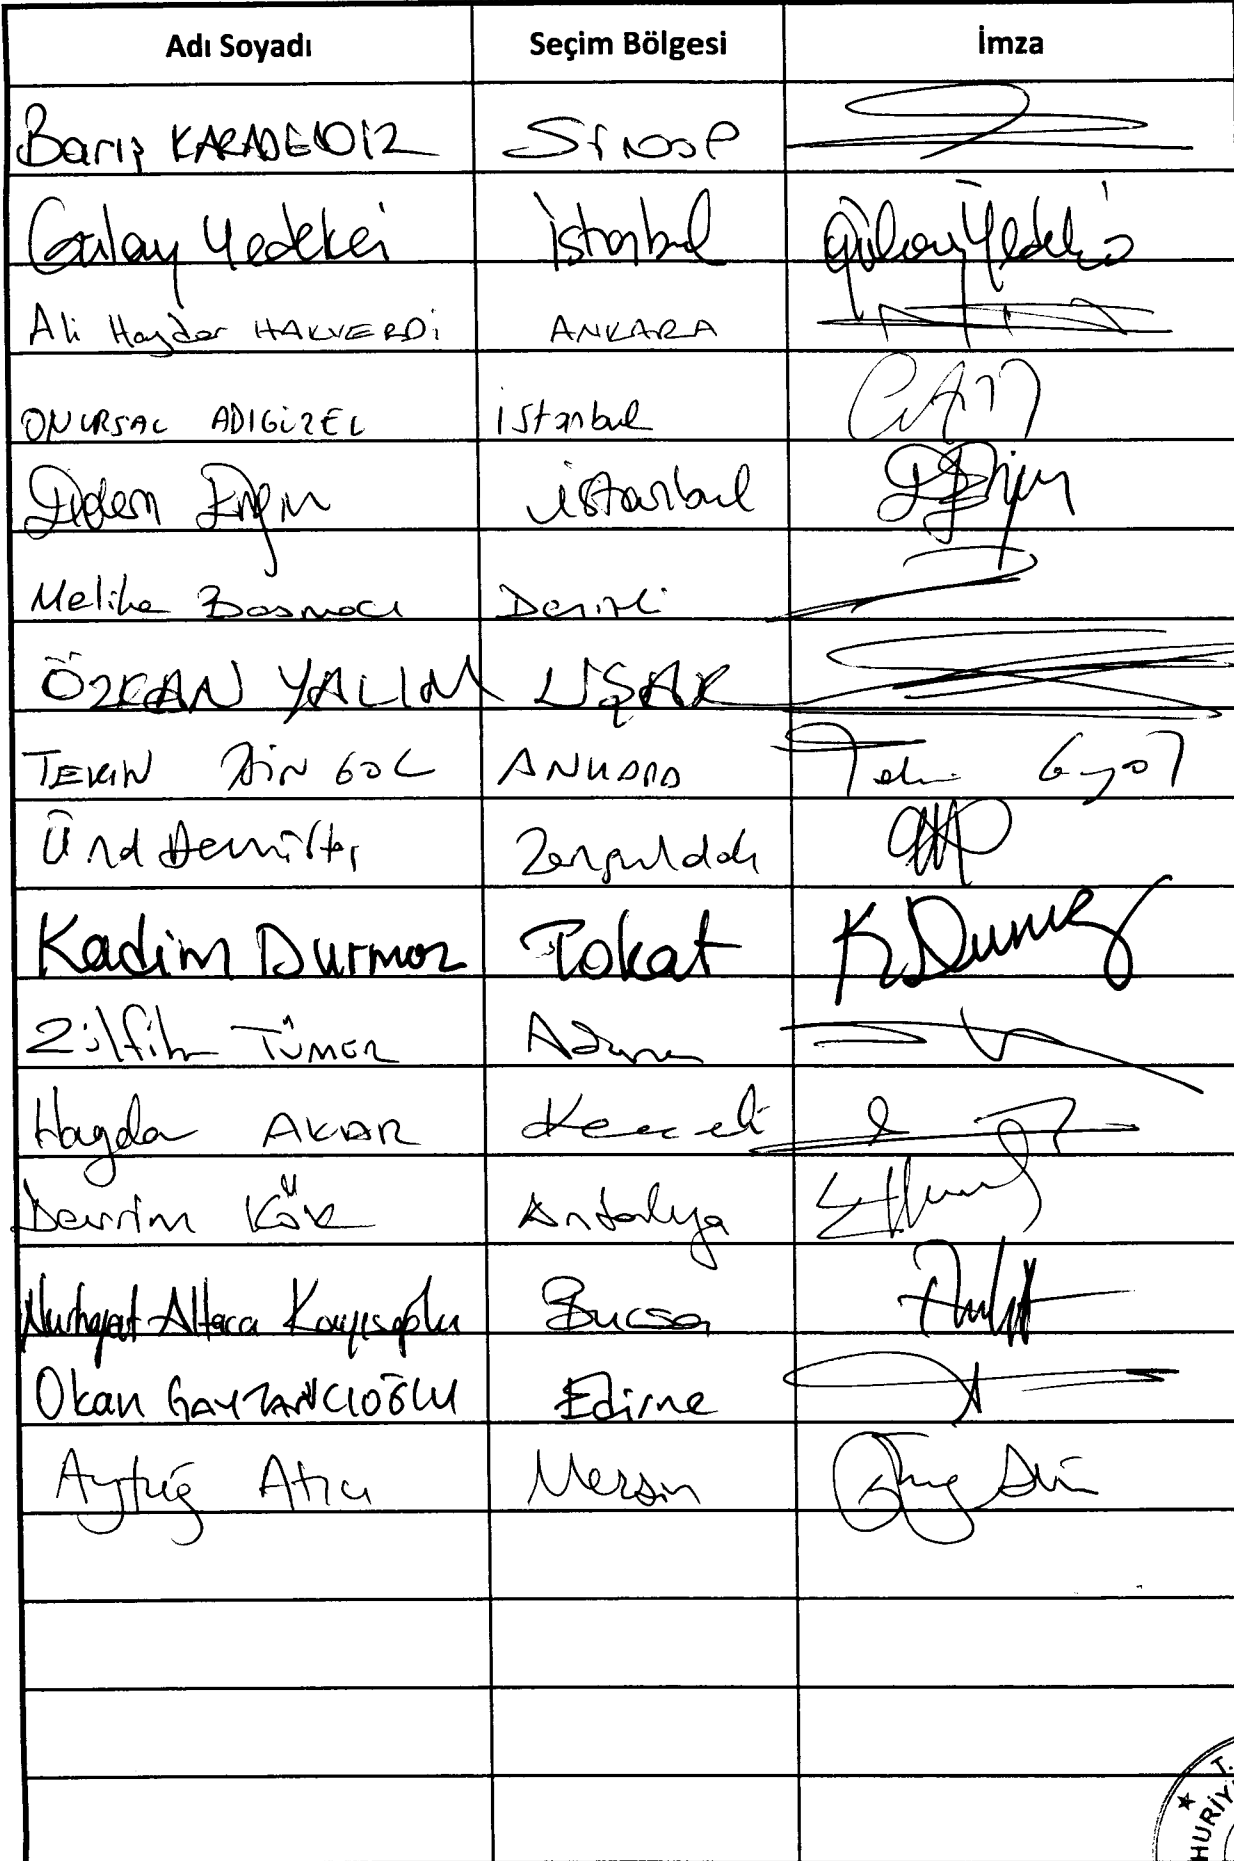 Adı Soyadı Seçim Bölgesi İmza
Barış KARADENİZ Sinop
Gülay Yedekci İstanbul Gülay Yedekci
Ali Haydar HAKVERDİ ANKARA
ONURSAL ADIGÜZEL İstanbul
Didem Engin İstanbul
Melike Basmacı Denizli
ÖZKAN YALIM UŞAK
TEKİN BİNGÖL ANKARA
Ünal Demirtaş Zonguldak
Kadim Durmaz Tokat K.Durmaz
Zülfikar TÜMER Adana
Haydar AKAR Kocaeli
Devrim KÖK Antalya
Nurhayat Altaca Kayışoğlu Bursa
Okan GAYTANCIOĞLU Edirne
Aytuğ Atıcı Mersin